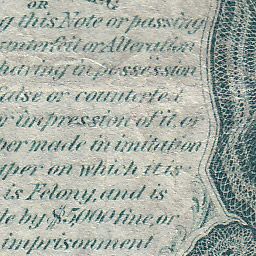 OR
g this Note or passing
ounterfeit or Alteration
having in possession
false or counterfeit
or impression of it, or
per made in imitation
aper on which it is
is Felony, and is
le by $5000 fine, or
imprisonment